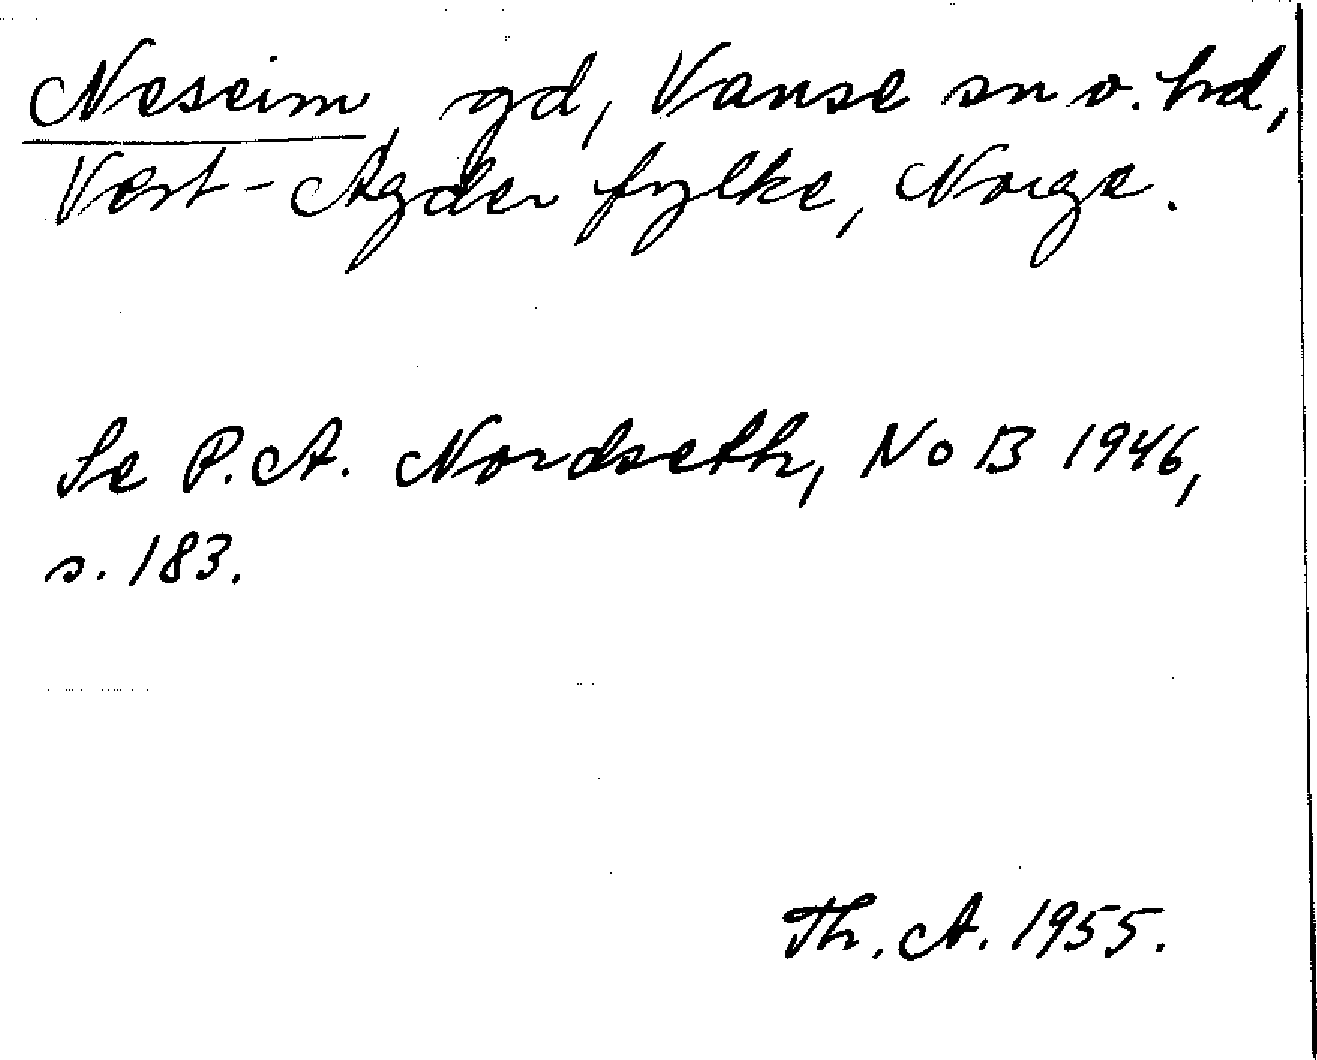 Neseim, gd, Vanse sn o. hd,
Vest-Agder fylke, Norge.
Se P.A. Nordseth, NoB 1946,
s. 183.
Th. A. 1955.